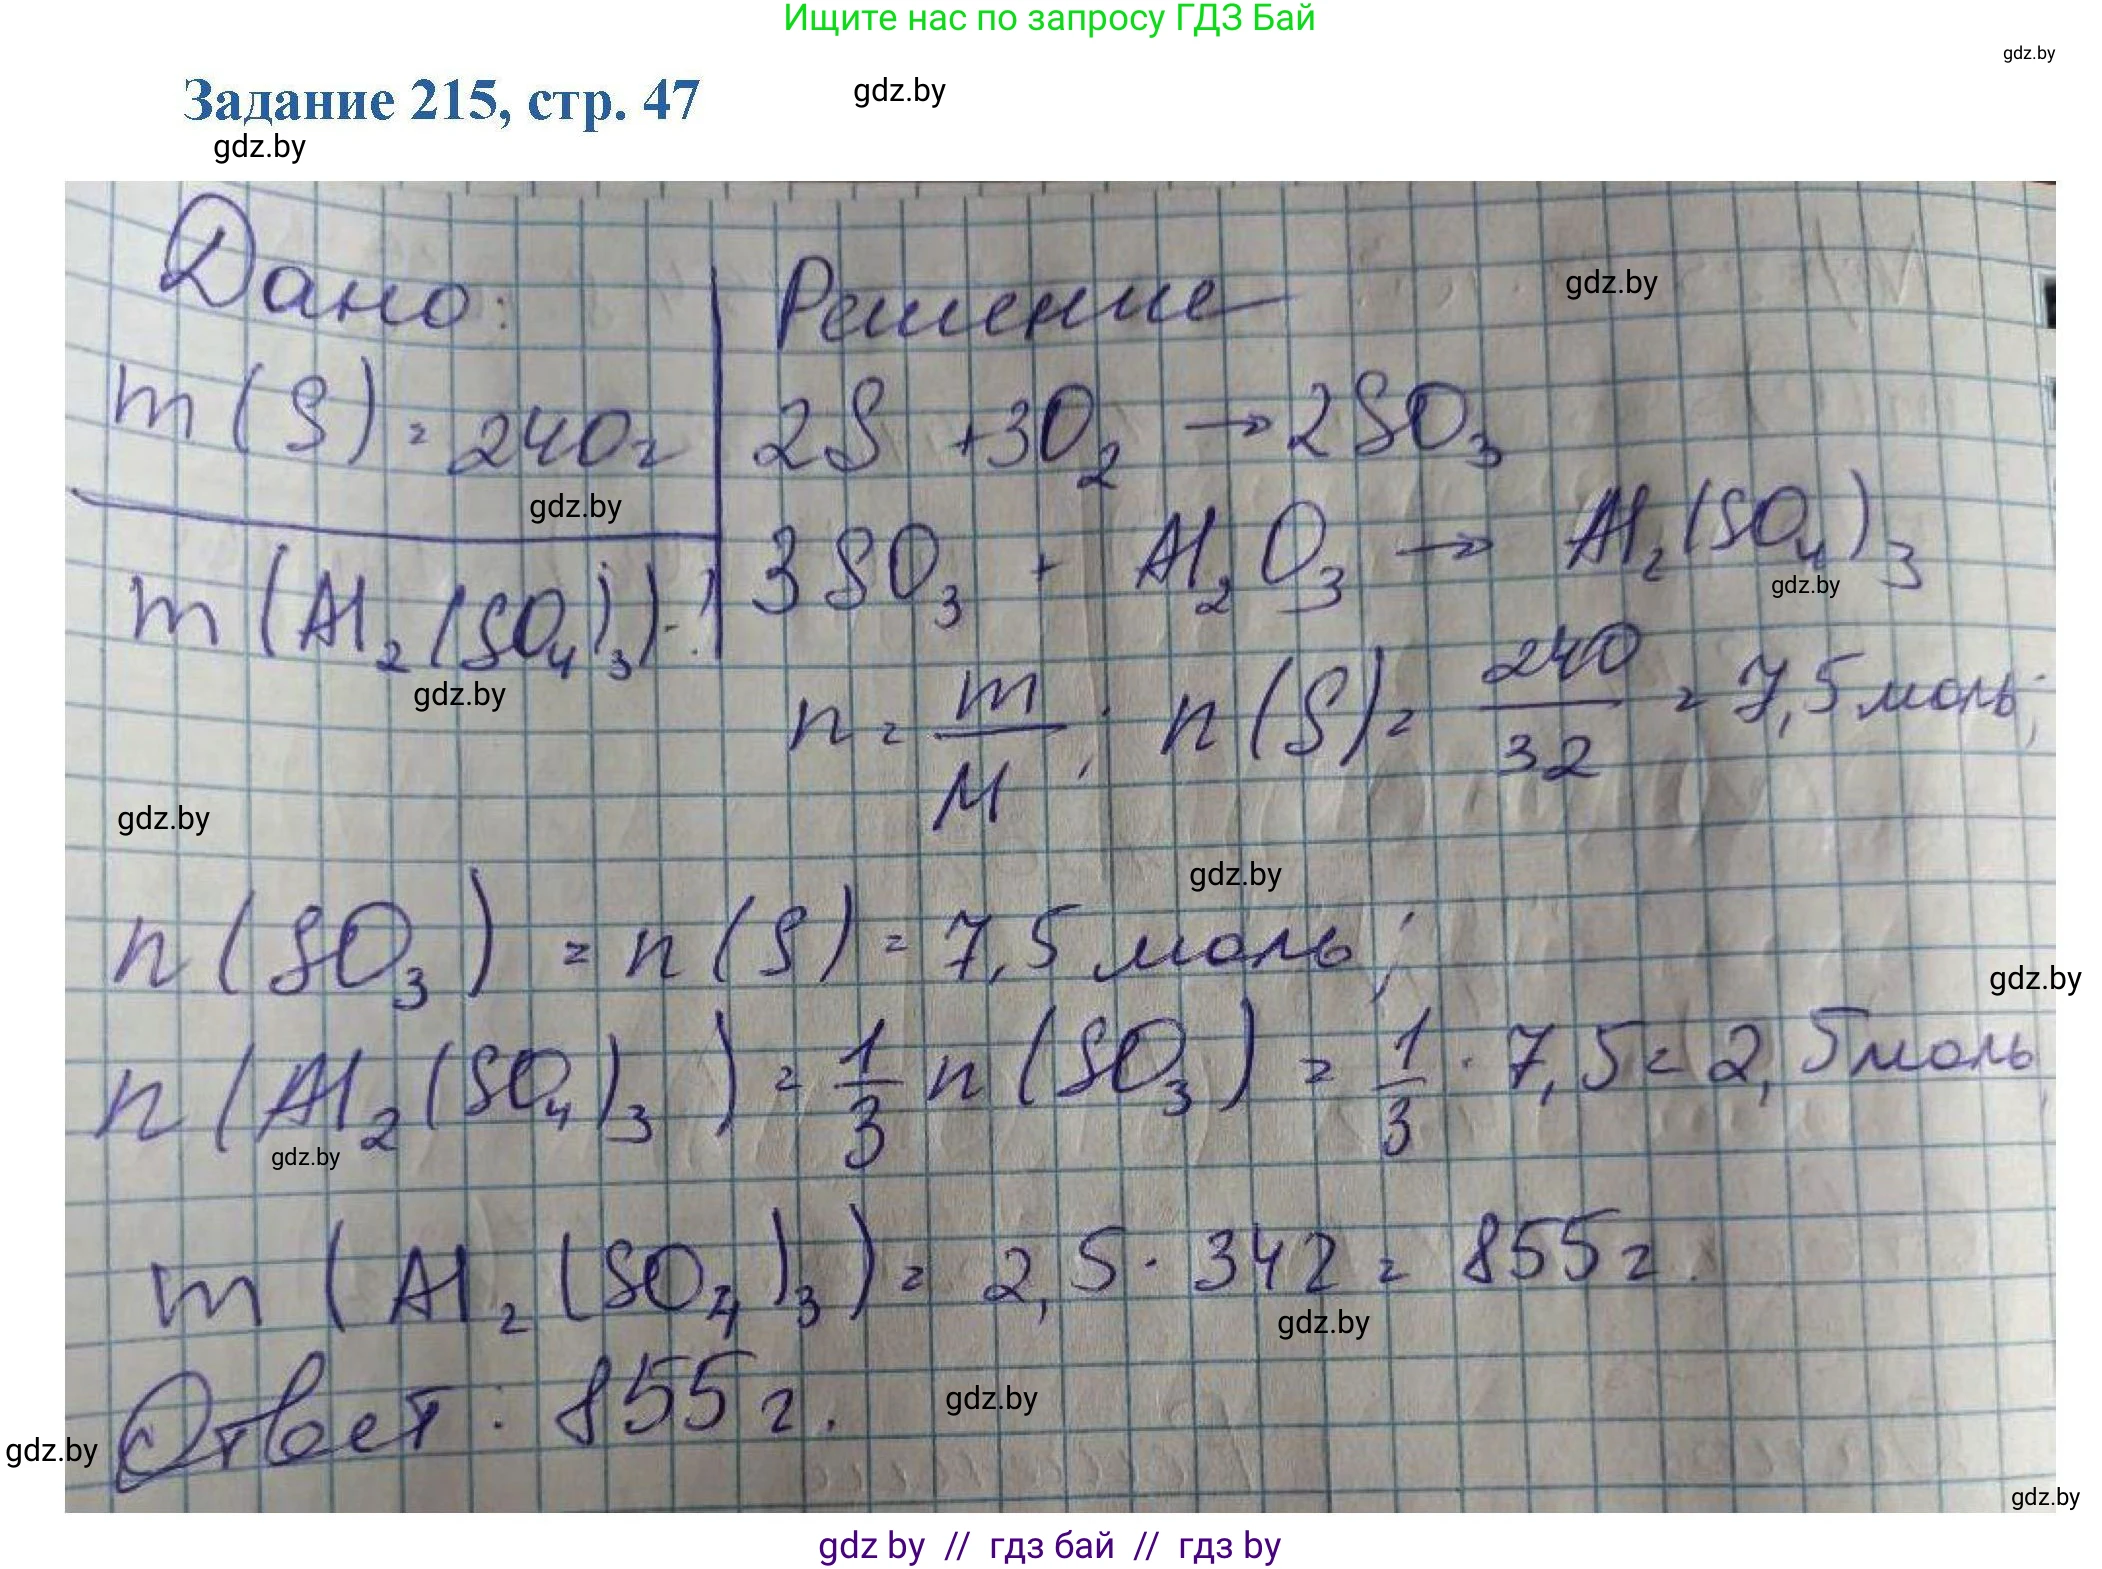 Ищите нас по запросу ГДЗ Бай
gdz.by
Задание 215, стр. 47
gdz.by
gdz.by
Дано:
Решение
gdz.by
m(S) = 240г
2S + 3O₂ → 2SO₃
gdz.by
m(Al₂(SO₄)₃) - ?
3SO₃ + Al₂O₃ → Al₂(SO₄)₃
gdz.by
gdz.by
n = m/M; n(S) = 240/32 = 7,5 моль;
gdz.by
gdz.by
n(SO₃) = n(S) = 7,5 моль;
gdz.by
n(Al₂(SO₄)₃) = 1/3 n(SO₃) = 1/3 · 7,5 = 2,5 моль,
gdz.by
m(Al₂(SO₄)₃) = 2,5 · 342 = 855г.
gdz.by
Ответ: 855г.
gdz.by
gdz.by
gdz.by
gdz by // гдз бай // гдз by